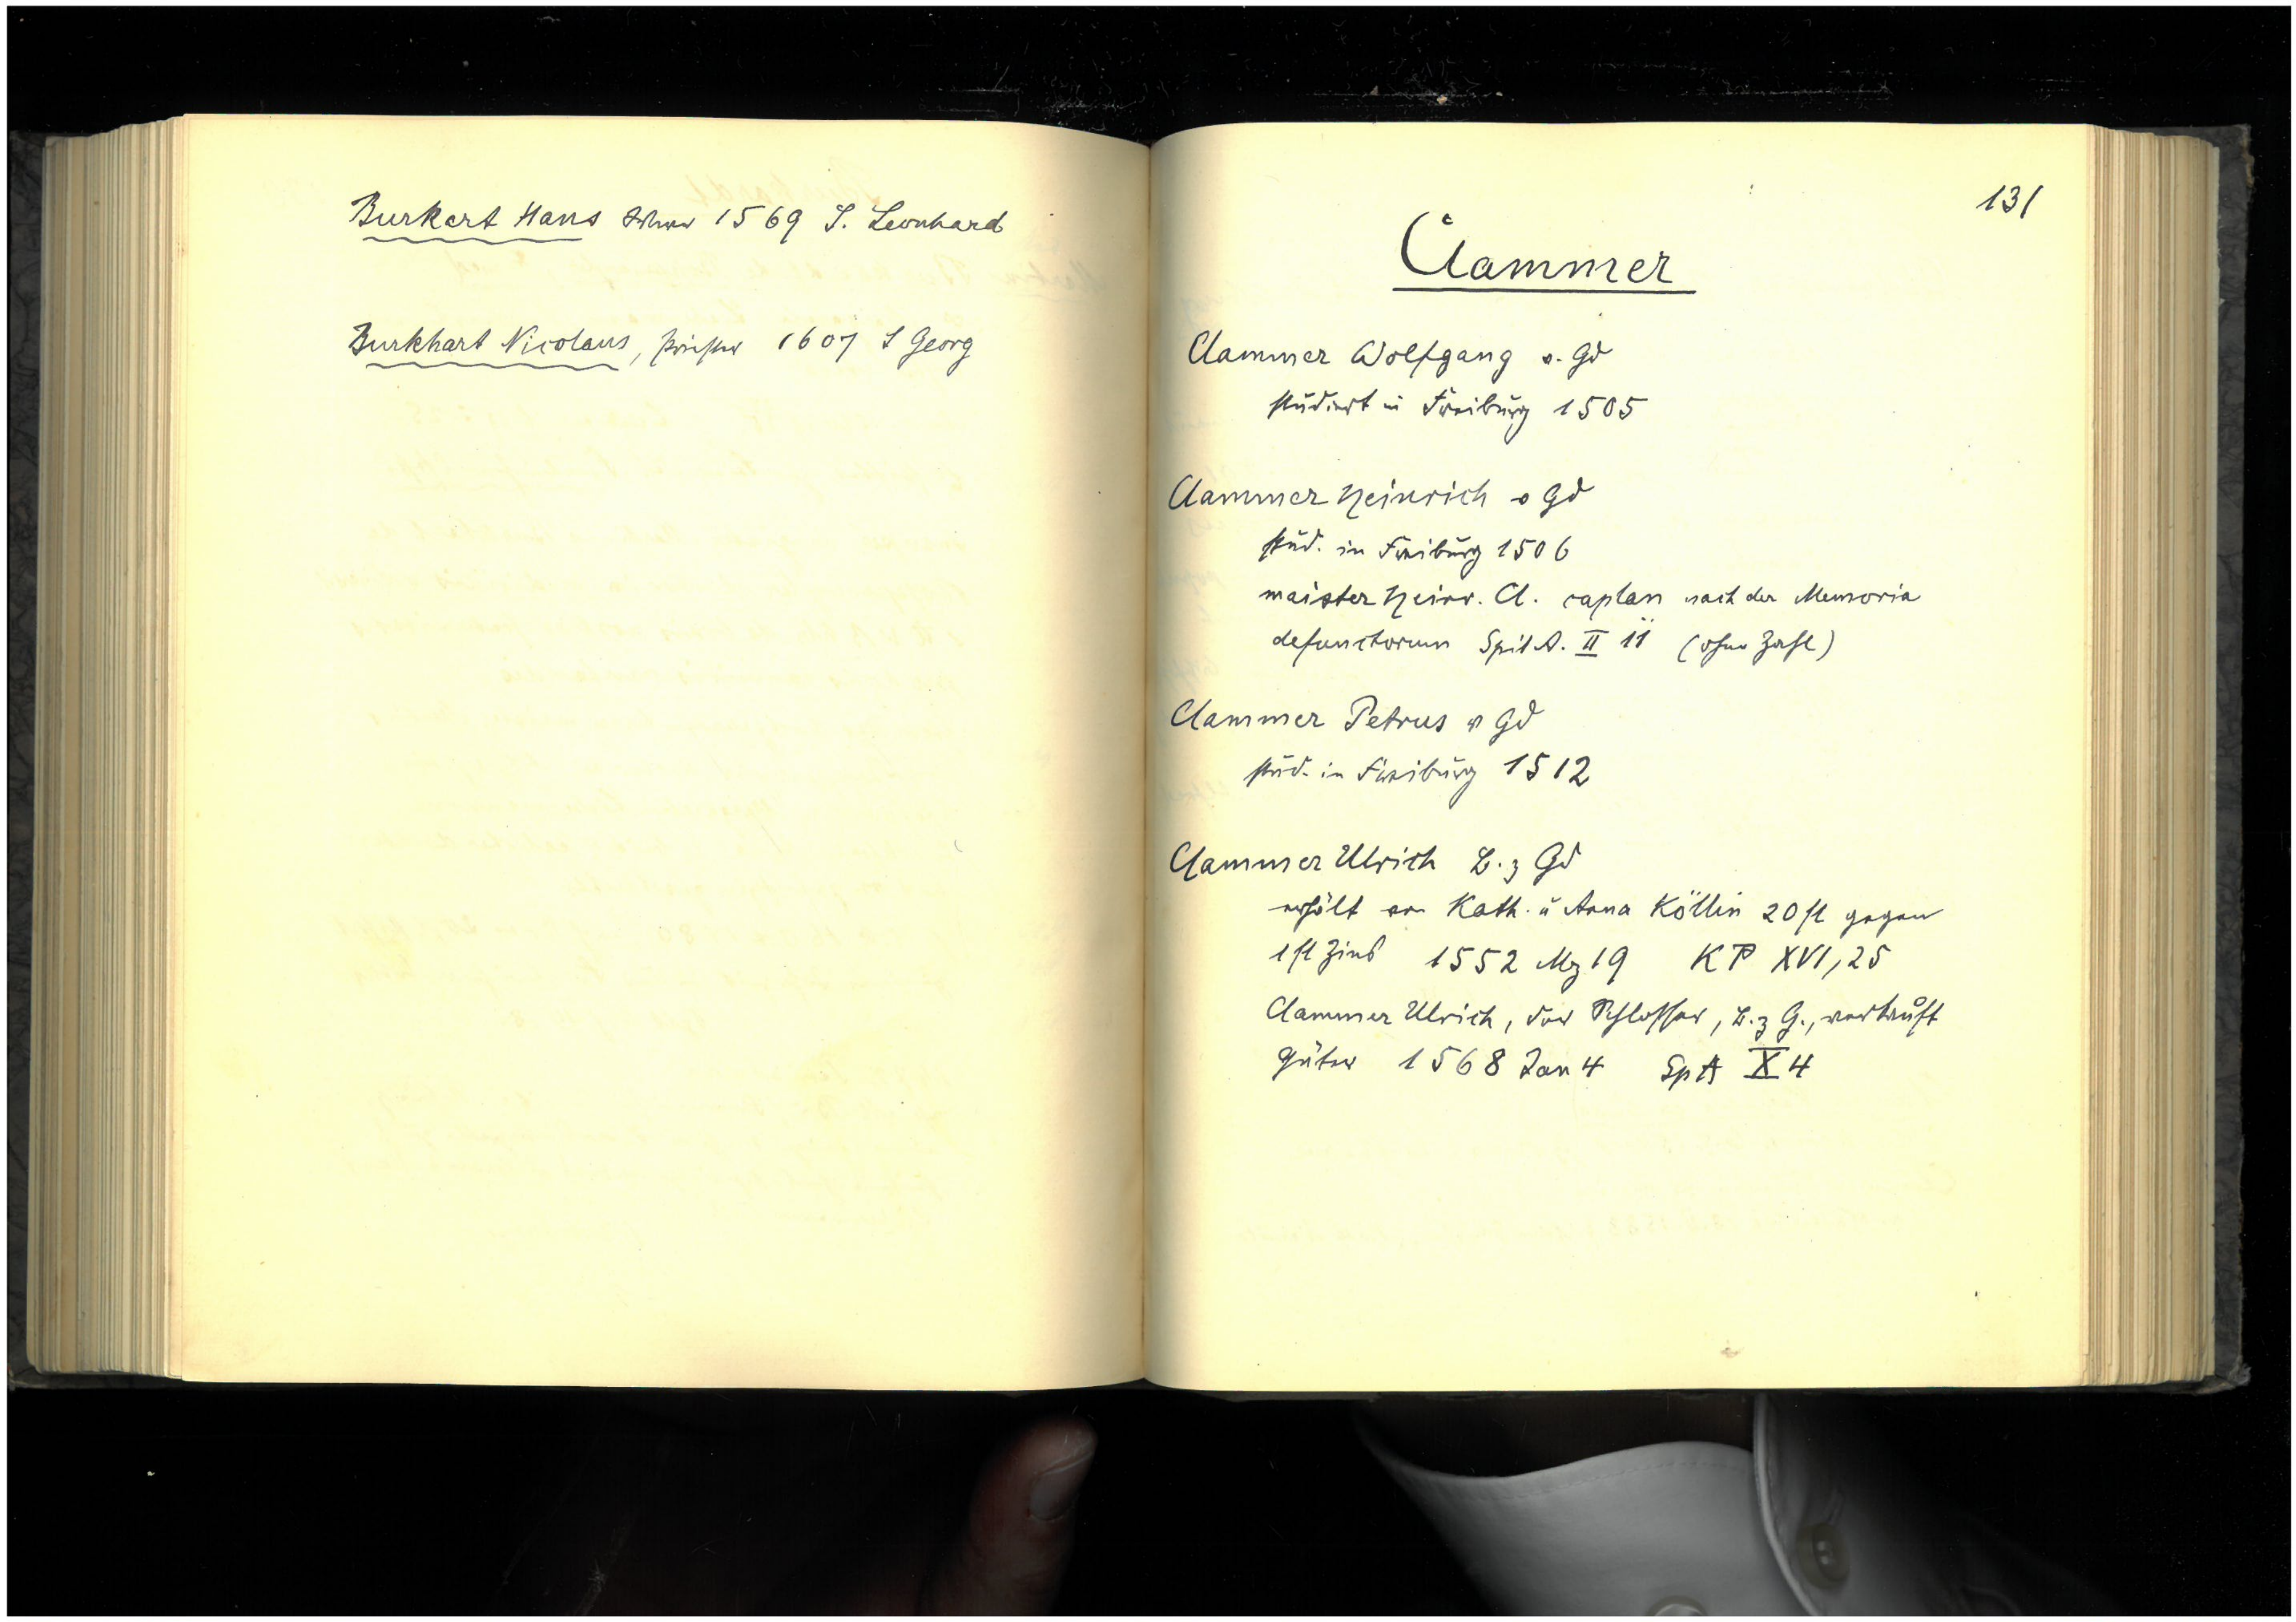 Burkert Hans 1569 S. Leonhard
Burkhart Nicolaus, Priester 1607 S Georg
131
Clammer
Clammer Wolfgang v. Gd
studiert in Freiburg 1505
Clammer Heinrich v Gd
stud. in Freiburg 1506
maister Heinr. Cl. caplan nach der Memoria
defunctorum Spit A. II 11 (ohne Zahl)
Clammer Petrus v Gd
stud. in Freiburg 1512
Clammer Ulrich B. z Gd
erhält von Kath. u Anna Köllin 20 fl gegen
1 fl Zins 1552 Mz 19 KP XVI, 25
Clammer Ulrich, der Schlosser, B. z G., verkauft
Güter 1568 Jan 4 SpA X 4